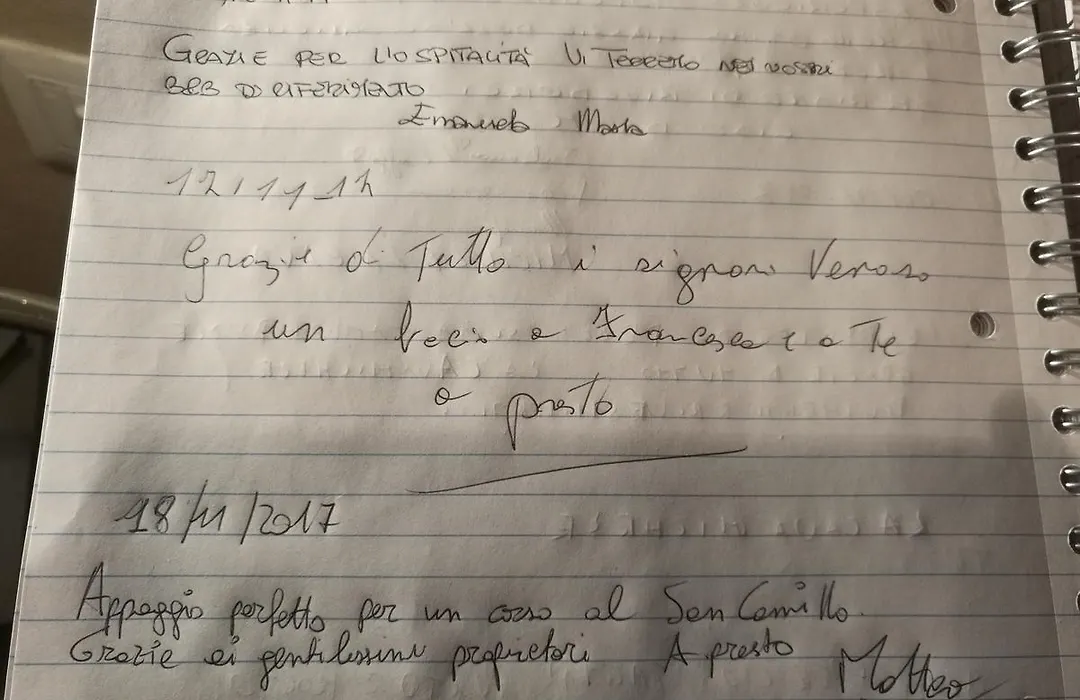 GRAZIE PER L'OSPITALITÀ VI TERREMO NEI NOSTRI
B&B DI RIFERIMENTO
Emanuela Marta
Grazie di Tutto i signori Veroso
un bacio a Francesca e a Te
a presto
18/11/2017
Appoggio perfetto per un corso al San Camillo.
Grazie ai gentilissimi proprietari A presto Matteo